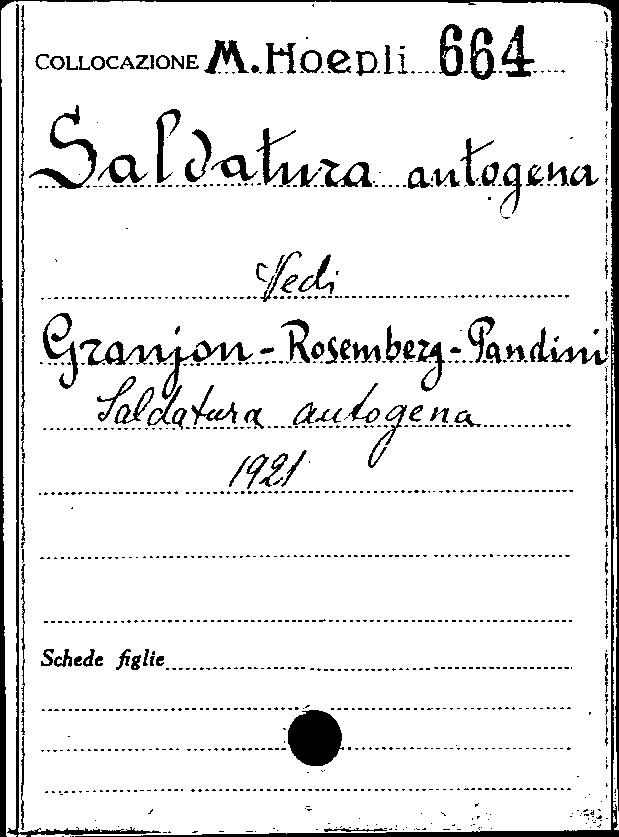 COLLOCAZIONE M. Hoepli 664
Saldatura autogena
Vedi
Granjon - Rosemberg - Pandini
Saldatura autogena
1921
Schede figlie